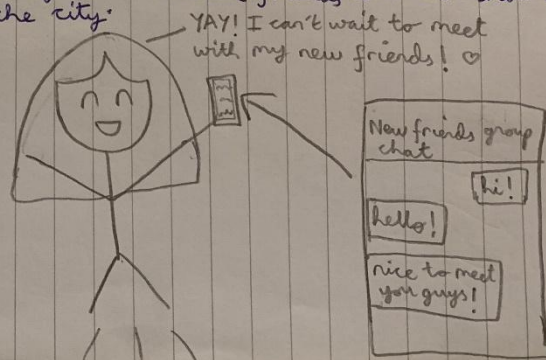 the city.
YAY! I can't wait to meet
with my new friends! ♡
New friends group
chat
hi!
hello!
nice to meet
you guys!